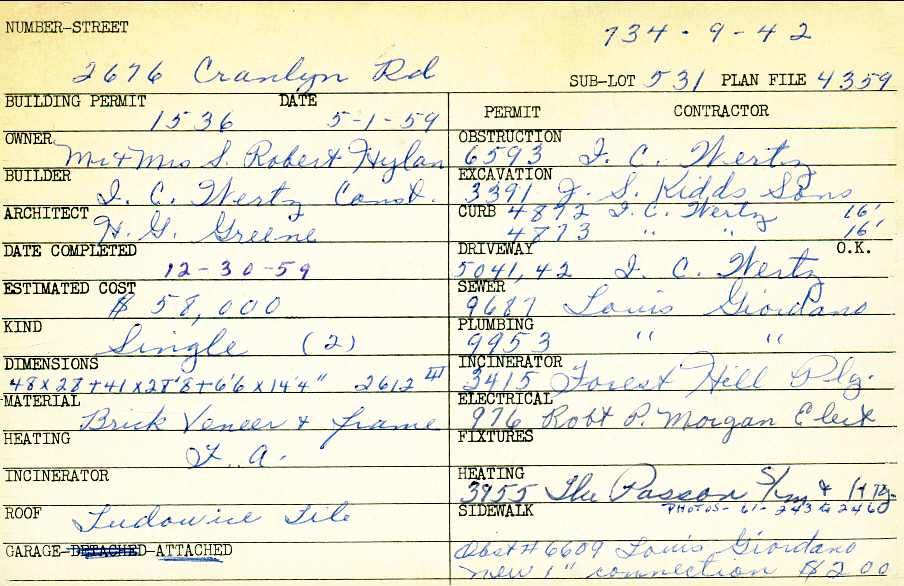 NUMBER-STREET
734-9-42
2676 Cranlyn Rd
SUB-LOT 531 PLAN FILE 4359
BUILDING PERMIT DATE
1536 5-1-59
OWNER
Mr & Mrs S. Robert Hylan
BUILDER
I. C. Wertz Const.
ARCHITECT
H. G. Greene
DATE COMPLETED
12-30-59
ESTIMATED COST
$ 58,000
KIND
Single (2)
DIMENSIONS
48 x 28 + 41 x 28'8 + 6'6 x 14'4" 2612
MATERIAL
Brick Veneer & frame
HEATING
F. A.
INCINERATOR
ROOF
Ludowice Tile
GARAGE-DETACHED-ATTACHED
PERMIT CONTRACTOR
OBSTRUCTION
6593 I. C. Wertz
EXCAVATION
3391 J. S. Kidds Sons
CURB 4872 I. C. Wertz 16'
4873 " " 16'
DRIVEWAY O.K.
5041,42 I. C. Wertz
SEWER
9687 Louis Giordano
PLUMBING
9953 " "
INCINERATOR
3415 Forest Hill Plg.
ELECTRICAL
976 Robt P. Morgan Elect
FIXTURES
HEATING
3955 The Passon S/m & Htg.
SIDEWALK
PHOTOS-61-243 & 2460
Obst # 6609 Louis Giordano
new 1" connection $200